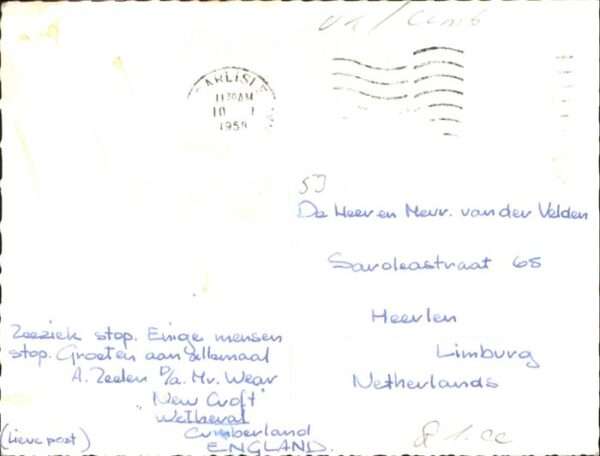 UK / CUMB
CARLISLE
11 30 AM
10
1959
53
De Heer en Mevr. van der Velden
Saroleastraat 65
Heerlen
Limburg
Netherlands
Zeeziek stop. Einige mensen
stop. Groeten aan allemaal
A. Zeelen p/a. Mr. Wear
"New Croft"
Wetheral
Cumberland
ENGLAND.
(Lieve post)